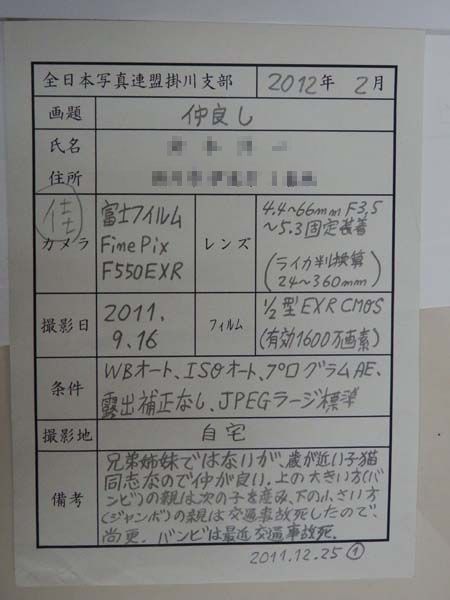 全日本写真連盟掛川支部 2012年 2月
画題 仲良し
氏名
住所
佳
カメラ 富士フイルム
FinePix
F550EXR
レンズ 4.4~66mm F3,5
~5.3固定装着
(ライカ判換算
24~360mm)
撮影日 2011.
9.16
フィルム 1/2型EXR CMOS
(有効1600万画素)
条件 WBオート、ISOオート、プログラムAE、
露出補正なし、JPEGラージ標準
撮影地 自宅
備考 兄弟姉妹ではないが、歳が近い子猫
同志なので仲が良い。上の大きい方(バ
ンビ)の親は次の子を産み、下の小さい方
(ジャンボ)の親は交通事故死したので、
尚更。バンビは最近交通事故死。
2011.12.25 ①